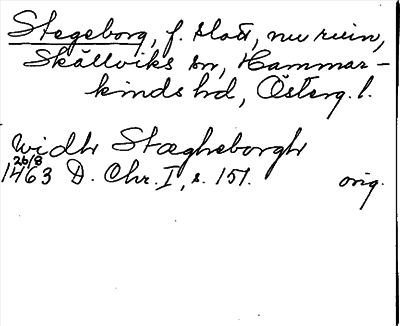 Stegeborg, f. slott, nu ruin,
Skällviks sn, Hammar-
kinds hd, Österg. l.
widh Stægheborgh
26/8
1463 D. Chr. I, s. 151. orig.